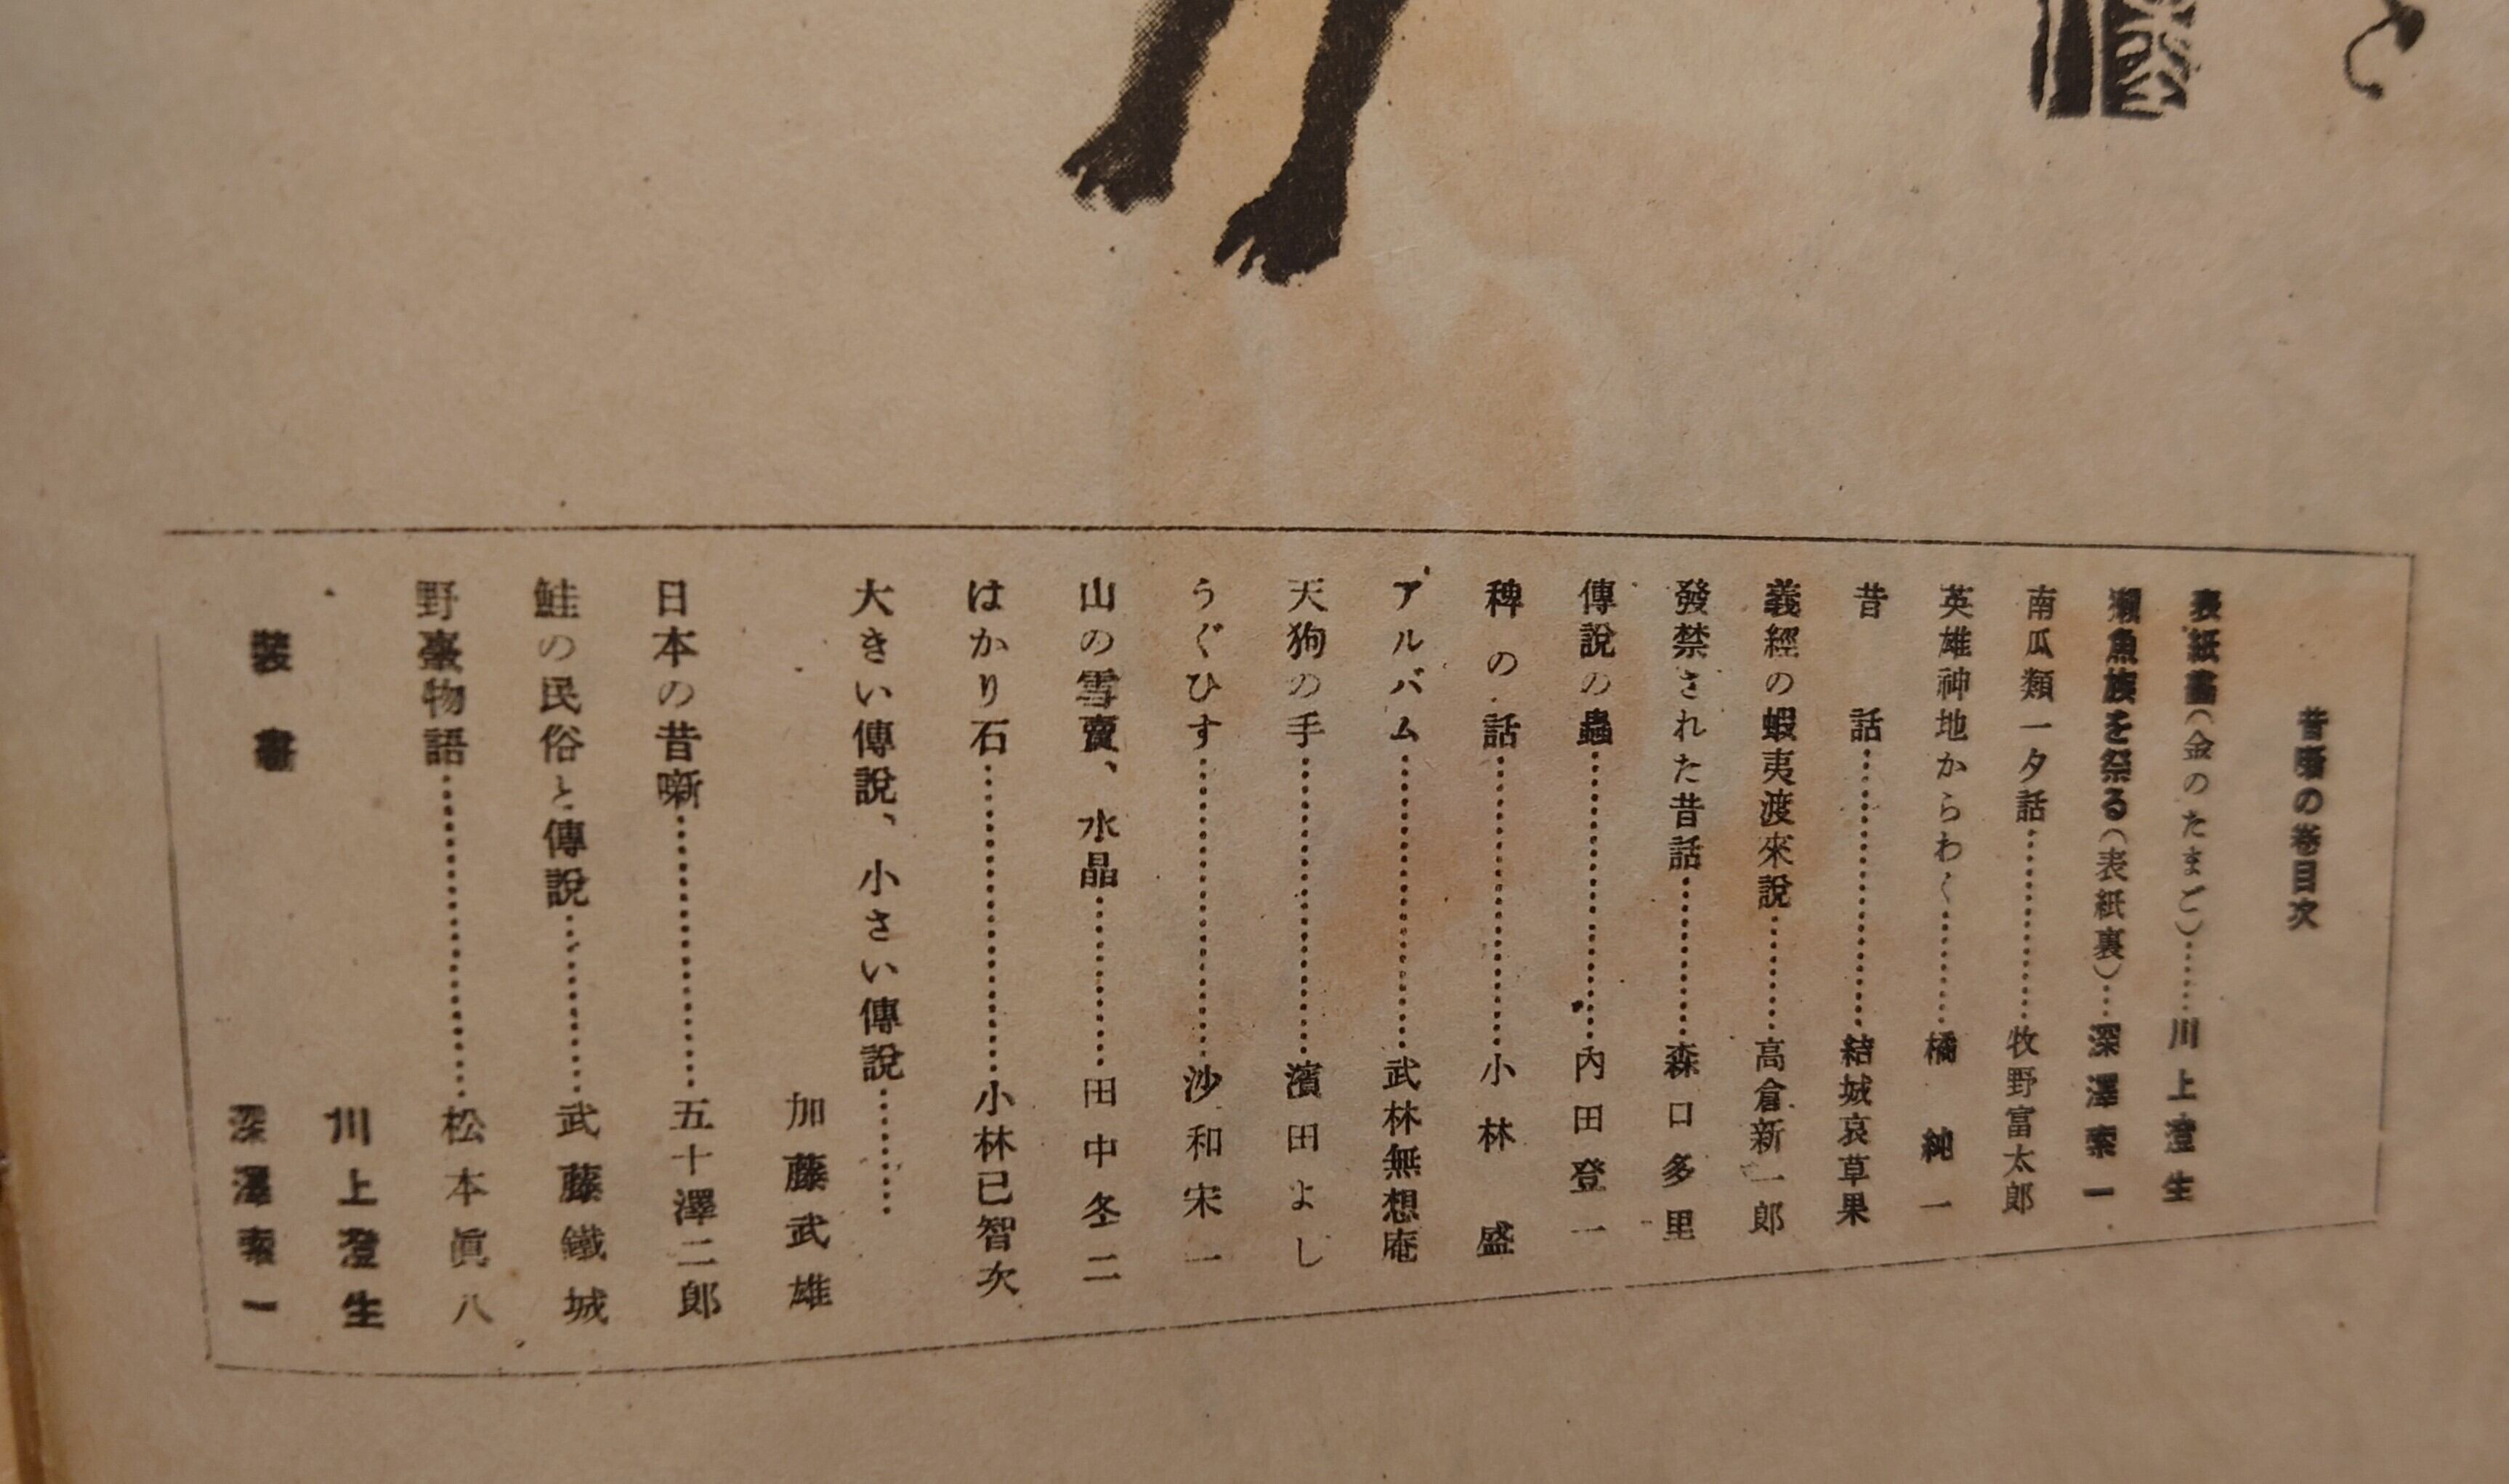 昔噺の卷目次
表紙畵(金のたまご)……川上澄生
獺魚族を祭る(表紙裏)…深澤索一
南瓜類一夕話……………牧野富太郎
英雄神地からわく………橘純一
昔話……………………結城哀草果
義經の蝦夷渡來說………高倉新一郎
發禁された昔話…………森口多里
傳說の蟲…………………内田登一
稗の話……………………小林盛
アルバム…………………武林無想庵
天狗の手…………………濱田よし
うぐひす…………………沙和宋一
山の雪賣、水晶…………田中冬二
はかり石…………………小林已智次
大きい傳說、小さい傳說………
加藤武雄
日本の昔噺………………五十澤二郎
鮭の民俗と傳說…………武藤鐵城
野臺物語…………………松本眞八
川上澄生
裝畵 深澤索一